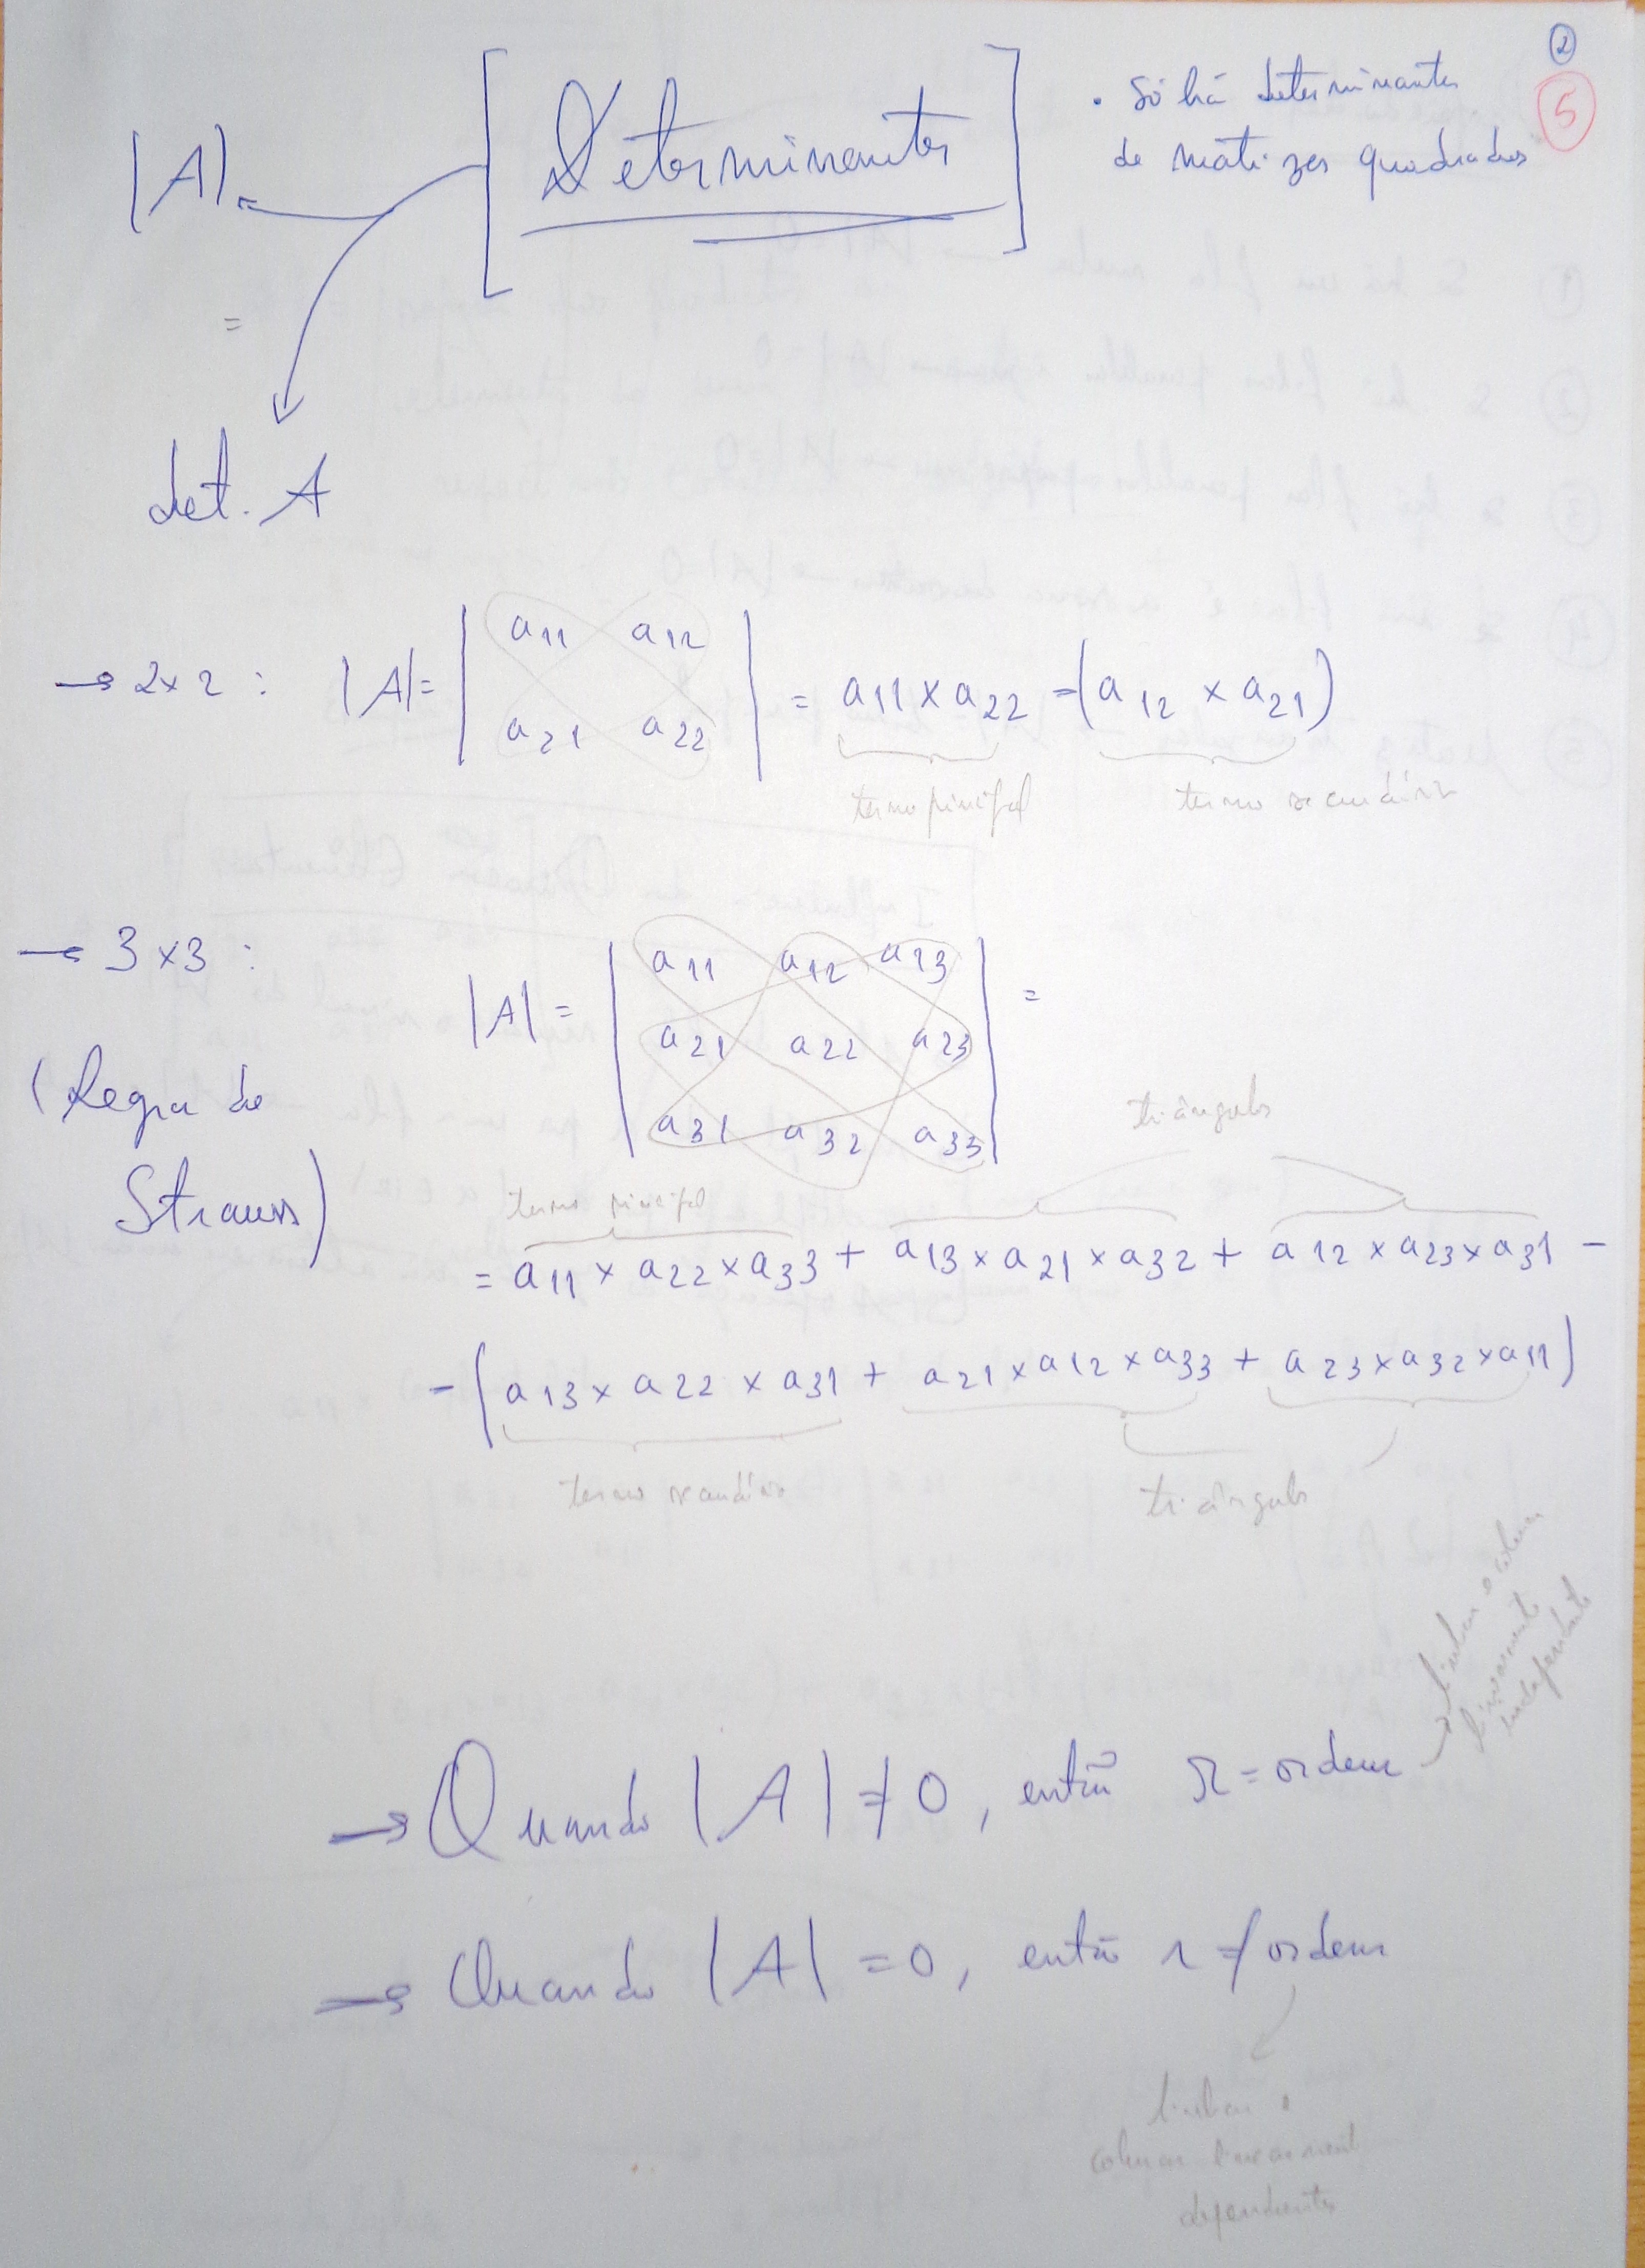 2
5
|A|
[Determinantes]
• Só há determinantes
de matrizes quadradas
=
det. A
→ 2x2 : |A| = | a11 a12
a21 a22 | = a11 x a22 - (a12 x a21)
termo principal termo secundário
→ 3x3 :
(Regra de
Strauss)
|A| = | a11 a12 a13
a21 a22 a23
a31 a32 a33 | =
triângulos
termo principal
= a11 x a22 x a33 + a13 x a21 x a32 + a12 x a23 x a31 -
- (a13 x a22 x a31 + a21 x a12 x a33 + a23 x a32 x a11)
termo secundário triângulos
linhas e colunas
linearmente
independentes
→ Quando |A| ≠ 0, então r = ordem
→ Quando |A| = 0, então r ≠ ordem
linhas e
colunas linearment
dependentes